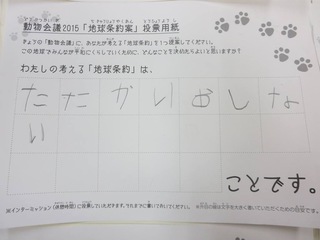 動物会議2015「地球条約案」投票用紙
きょうの「動物会議」に、あなたが考える「地球条約」を1つ提案してください。
この地球でみんなが平和にくらしていくために、どんなことを決めたらよいと思いますか？
わたしの考える「地球条約」は、
たたかいおしな
い
ことです。
※インターミッション（休憩時間）に投票していただきます。それまでに書いておいてください。